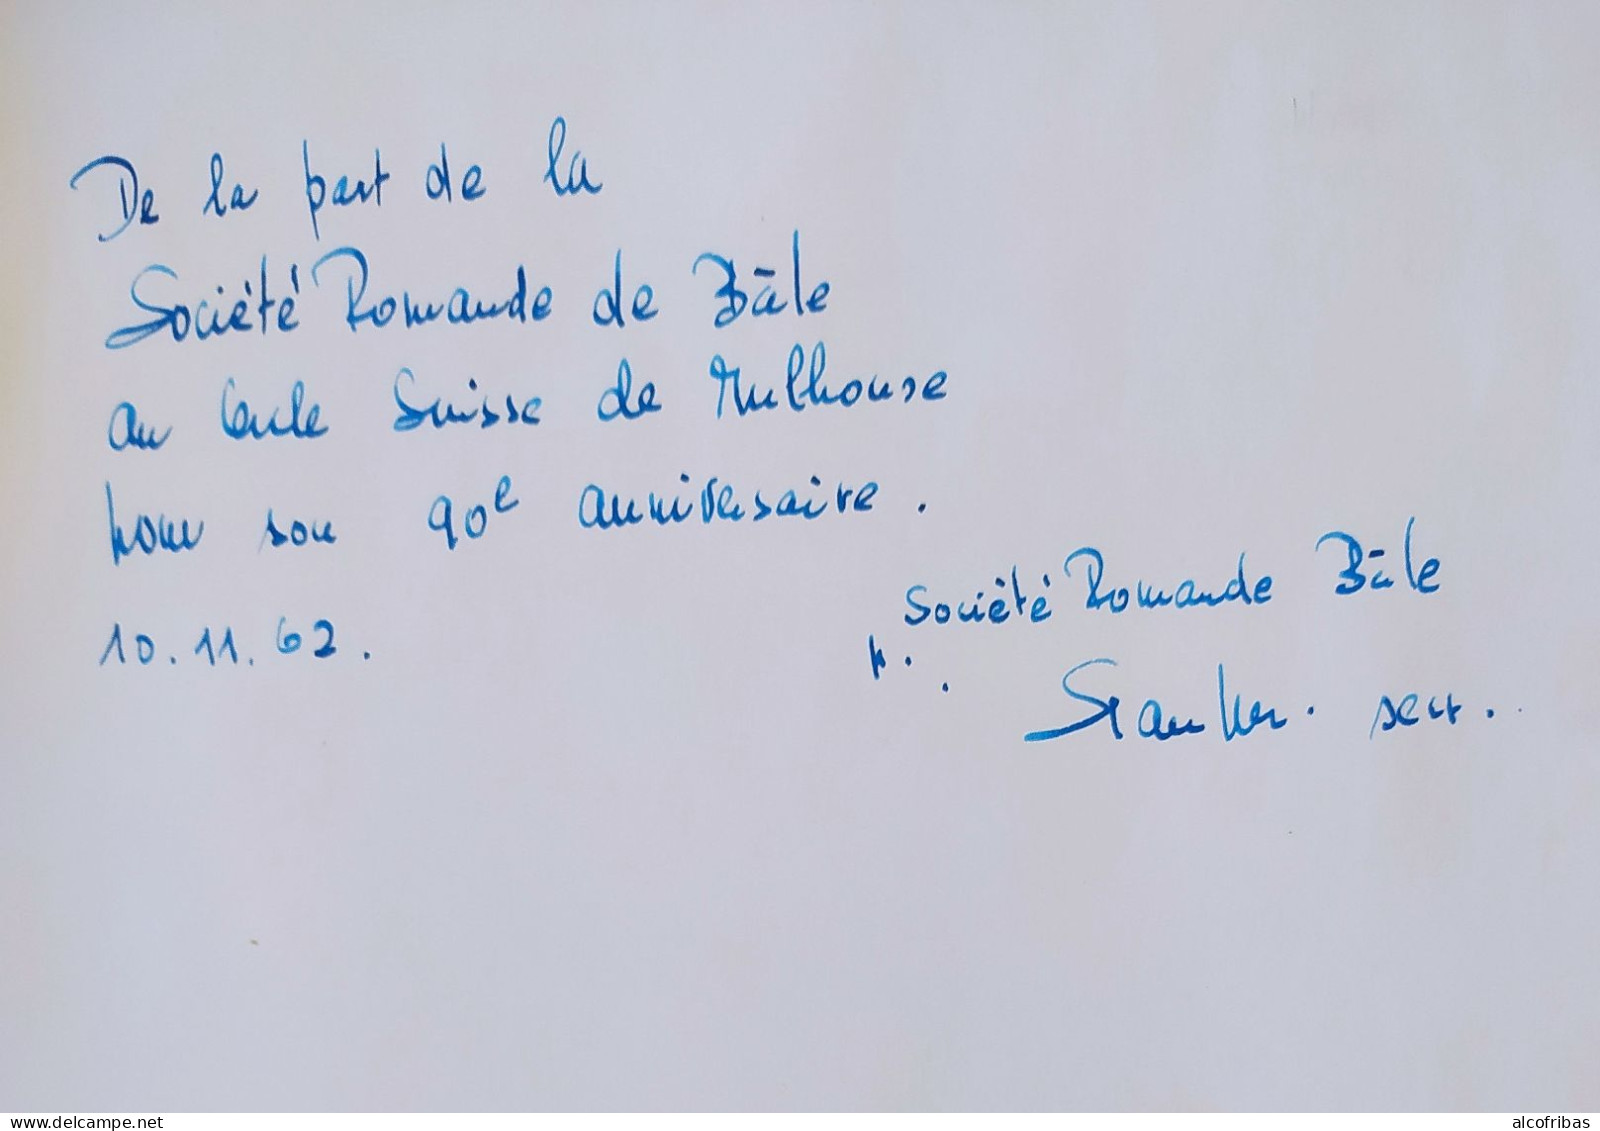 De la part de la
Société Romande de Bâle
au Cercle Suisse de Mulhouse
pour son 90e anniversaire.
10.11.62.
Société Romande Bâle
p.
secr.
www.delcampe.net
alcofribas